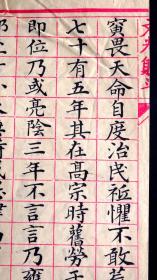 寅畏天命自度治民祗懼不敢荒
七十有五年其在高宗時舊勞于
即位乃或亮陰三年不言言乃雍